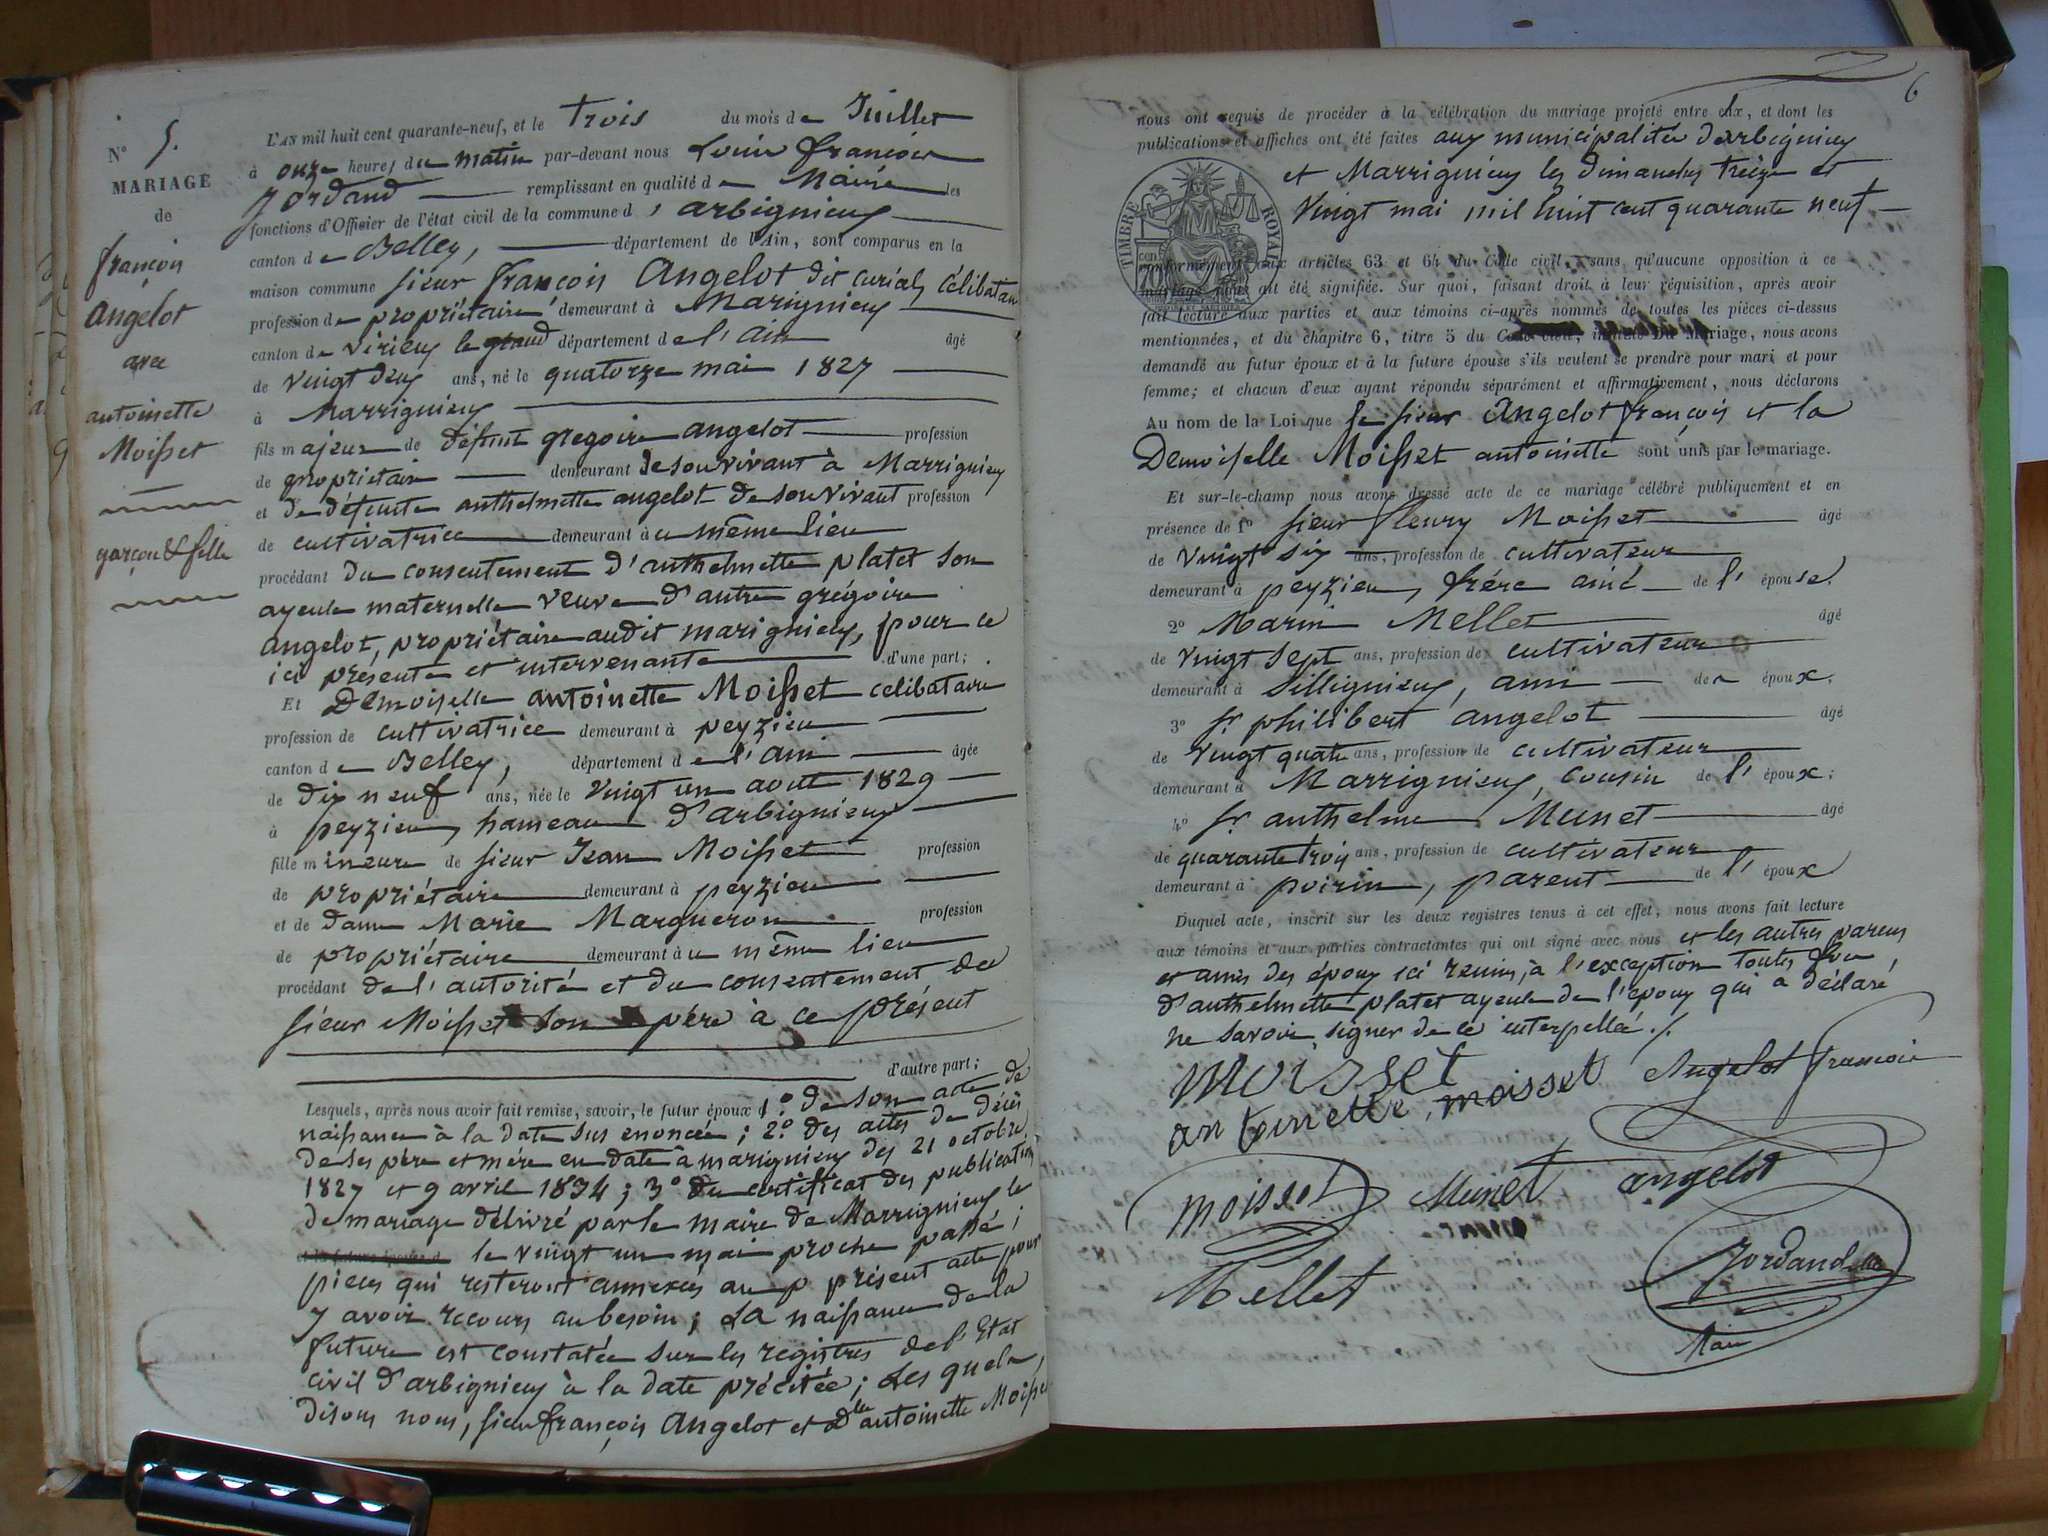 N° 5.
MARIAGE
de
françois
Angelot
avec
antoinette
Moisset
garçon & fille
L'AN mil huit cent quarante-neuf, et le trois du mois de Juillet
à onze heures du matin par-devant nous Louis françois
Jordand remplissant en qualité de Maire les
fonctions d'Officier de l'état civil de la commune d'arbignieu
canton de Belley, département de l'Ain, sont comparus en la
maison commune sieur françois Angelot dit curial, célibataire
profession de propriétaire demeurant à Marignieu
canton de Virieu le grand département de l'ain âgé
de vingt deux ans, né le quatorze mai 1827
à Marrignieu
fils majeur de défunt gregoire angelot profession
de propriétaire demeurant de son vivant à Marrignieu
et de défunte anthelmette angelot de son vivant profession
de cultivatrice demeurant au même lieu
procédant du consentement d'anthelmette platet son
ayeule maternelle veuve d'autre grégoire
angelot, propriétaire audit marignieu, pour ce
ici présente et intervenante d'une part;
Et Demoiselle antoinette Moisset celibataire
profession de cultivatrice demeurant à peyzieu
canton de Belley, département de l'ain âgée
de dix neuf ans, née le vingt un aout 1829
à peyzieu, hameau d'arbignieu
fille mineure de sieur Jean Moisset profession
de propriétaire demeurant à peyzieu
et de dame Marie Margueron profession
de propriétaire demeurant au même lieu
procédant de l'autorité et du consentement de
sieur Moisset son père à ce présent
d'autre part;
Lesquels, après nous avoir fait remise, savoir, le futur époux 1° de son acte de
naissance à la date sus enoncée; 2° des actes de décès
de ses père et mère en date à marignieu des 21 octobre
1827 et 9 avril 1834; 3° du certificat des publications
de mariage délivré par le maire de Marrignieu le
le vingt un mai proche passé;
pieces qui resteront annexees au p présent acte pour
y avoir recours au besoin; La naissance de la
future est constatée sur les registres de l'Etat
civil d'arbignieu à la date précitée; Les quels,
disons nous, sieur françois Angelot et dlle antoinette Moisset
6
nous ont requis de procéder à la célébration du mariage projeté entre eux, et dont les
publications et affiches ont été faites aux municipalités d'arbignieu
et Marrignieu les dimanches treize et
vingt mai mil huit cent quarante neuf
TIMBRE ROYAL
conformément aux articles 63 et 64 du Code civil, sans qu'aucune opposition à ce
mariage nous ait été signifiée. Sur quoi, faisant droit à leur réquisition, après avoir
fait lecture aux parties et aux témoins ci-après nommés de toutes les pièces ci-dessus
mentionnées, et du chapitre 6, titre 5 du Code civil, intitulé Du Mariage, nous avons
demandé au futur époux et à la future épouse s'ils veulent se prendre pour mari et pour
femme; et chacun d'eux ayant répondu séparément et affirmativement, nous déclarons
Au nom de la Loi que le sieur Angelot françois et la
Demoiselle Moisset antoinette sont unis par le mariage.
Et sur-le-champ nous avons dressé acte de ce mariage célébré publiquement et en
présence de 1° sieur fleury Moisset âgé
de vingt six ans, profession de cultivateur
demeurant à peyzieu, frére ainé de l'épouse.
2° Marin Mellet âgé
de vingt sept ans, profession de cultivateur
demeurant à Sillignieu, ami de époux,
3° sr philibert angelot âgé
de vingt quatre ans, profession de cultivateur
demeurant à Marrignieu, cousin de l'époux;
4° sr anthelme Munet âgé
de quarante trois ans, profession de cultivateur
demeurant à poirin, parent de l'époux
Duquel acte, inscrit sur les deux registres tenus à cet effet, nous avons fait lecture
aux témoins et aux parties contractantes qui ont signé avec nous et les autres parens
et amis des époux ici reunis, à l'exception toutes fois,
d'anthelmette platet ayeule de l'epoux qui a déclaré
ne savoir signer de ce interpellée.
Moisset
antoinette moisset Angelot francois
moisset Munet angelot
Mellet Jordand
Maire